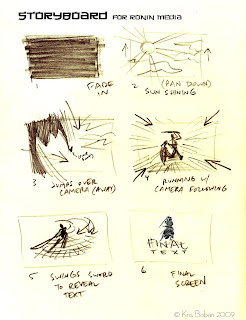 STORYBOARD FOR RONIN MEDIA
1 FADE IN
2 (PAN DOWN) SUN SHINING
3 JUMPS OVER CAMERA (AWAY)
4 RUNNING W/ CAMERA FOLLOWING
5 SWINGS SWORD TO REVEAL TEXT
FINAL TEXT
6 FINAL SCREEN
© Kris Baban 2009